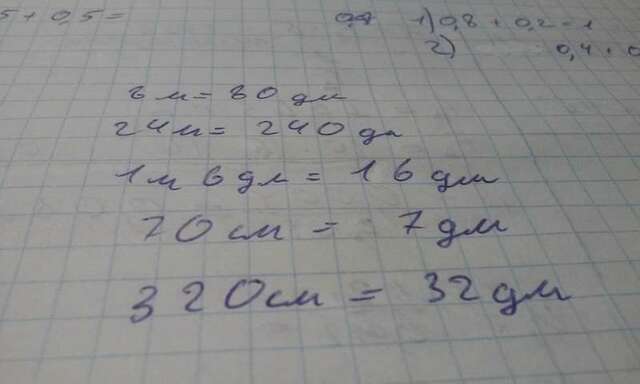 5 + 0,5 =
1) 0,8 + 0,2 = 1
2) 0,4 +
8 м = 80 дм
24 м = 240 дм
1 м 6 дм = 16 дм
70 см = 7 дм
320 см = 32 дм